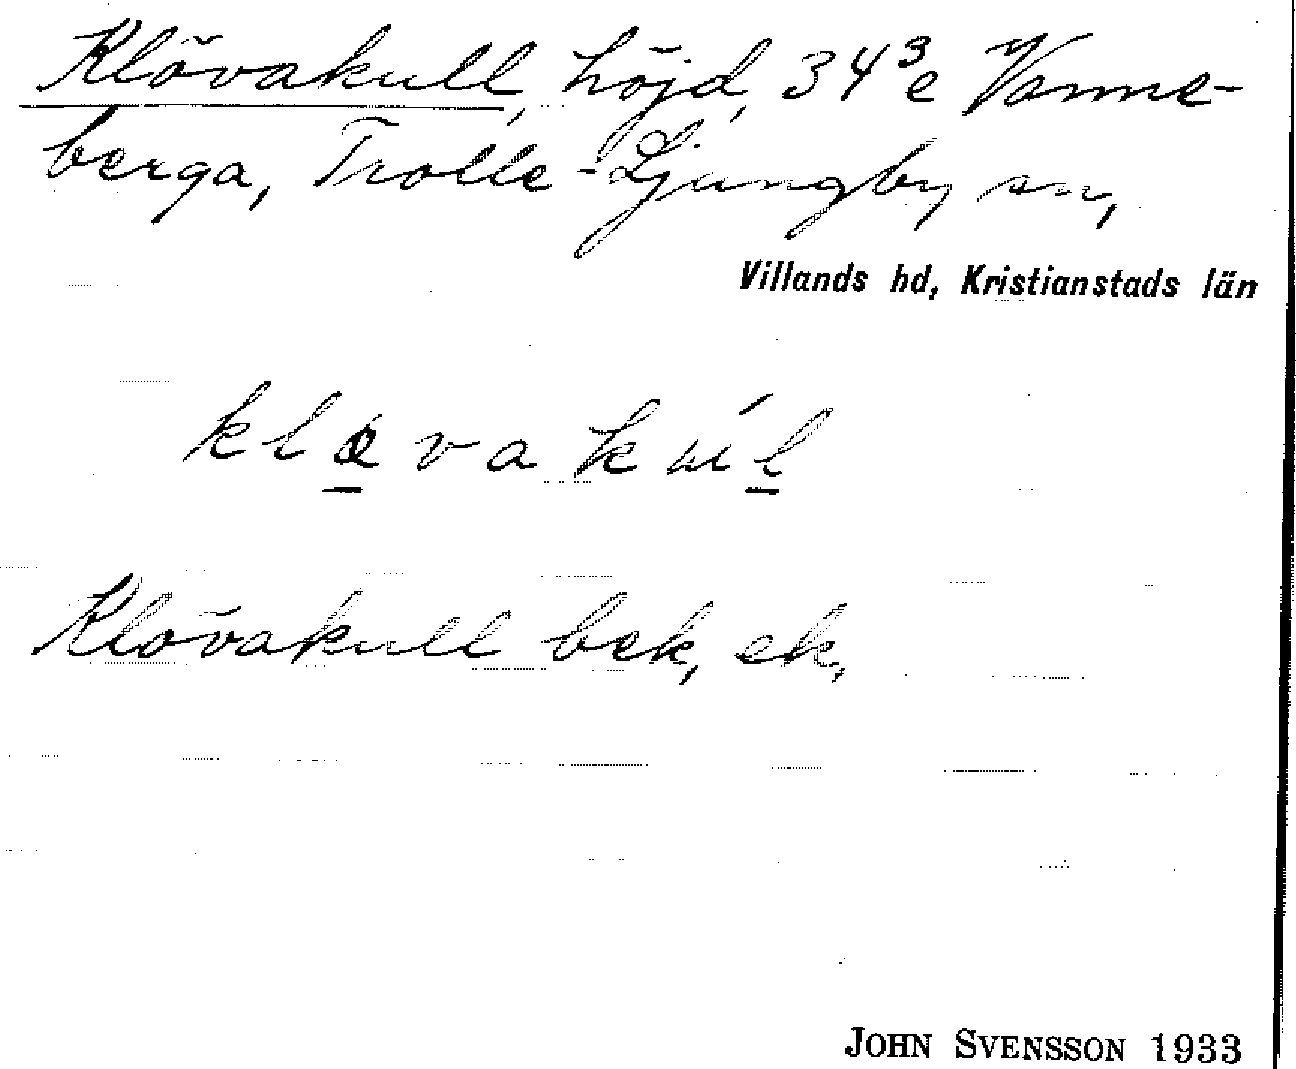 Klövakull, höjd, 34³e Vanne-
berga, Trolle-Ljungby sn,
Villands hd, Kristianstads län
Klövakull bek, ek,
JOHN SVENSSON 1933